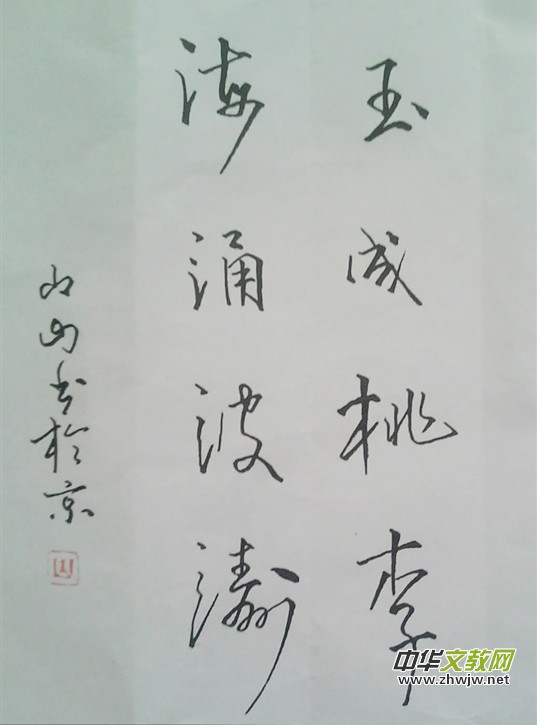 玉成桃李
海涌波濤
山书於京
中华文教网
www.zhwjw.net